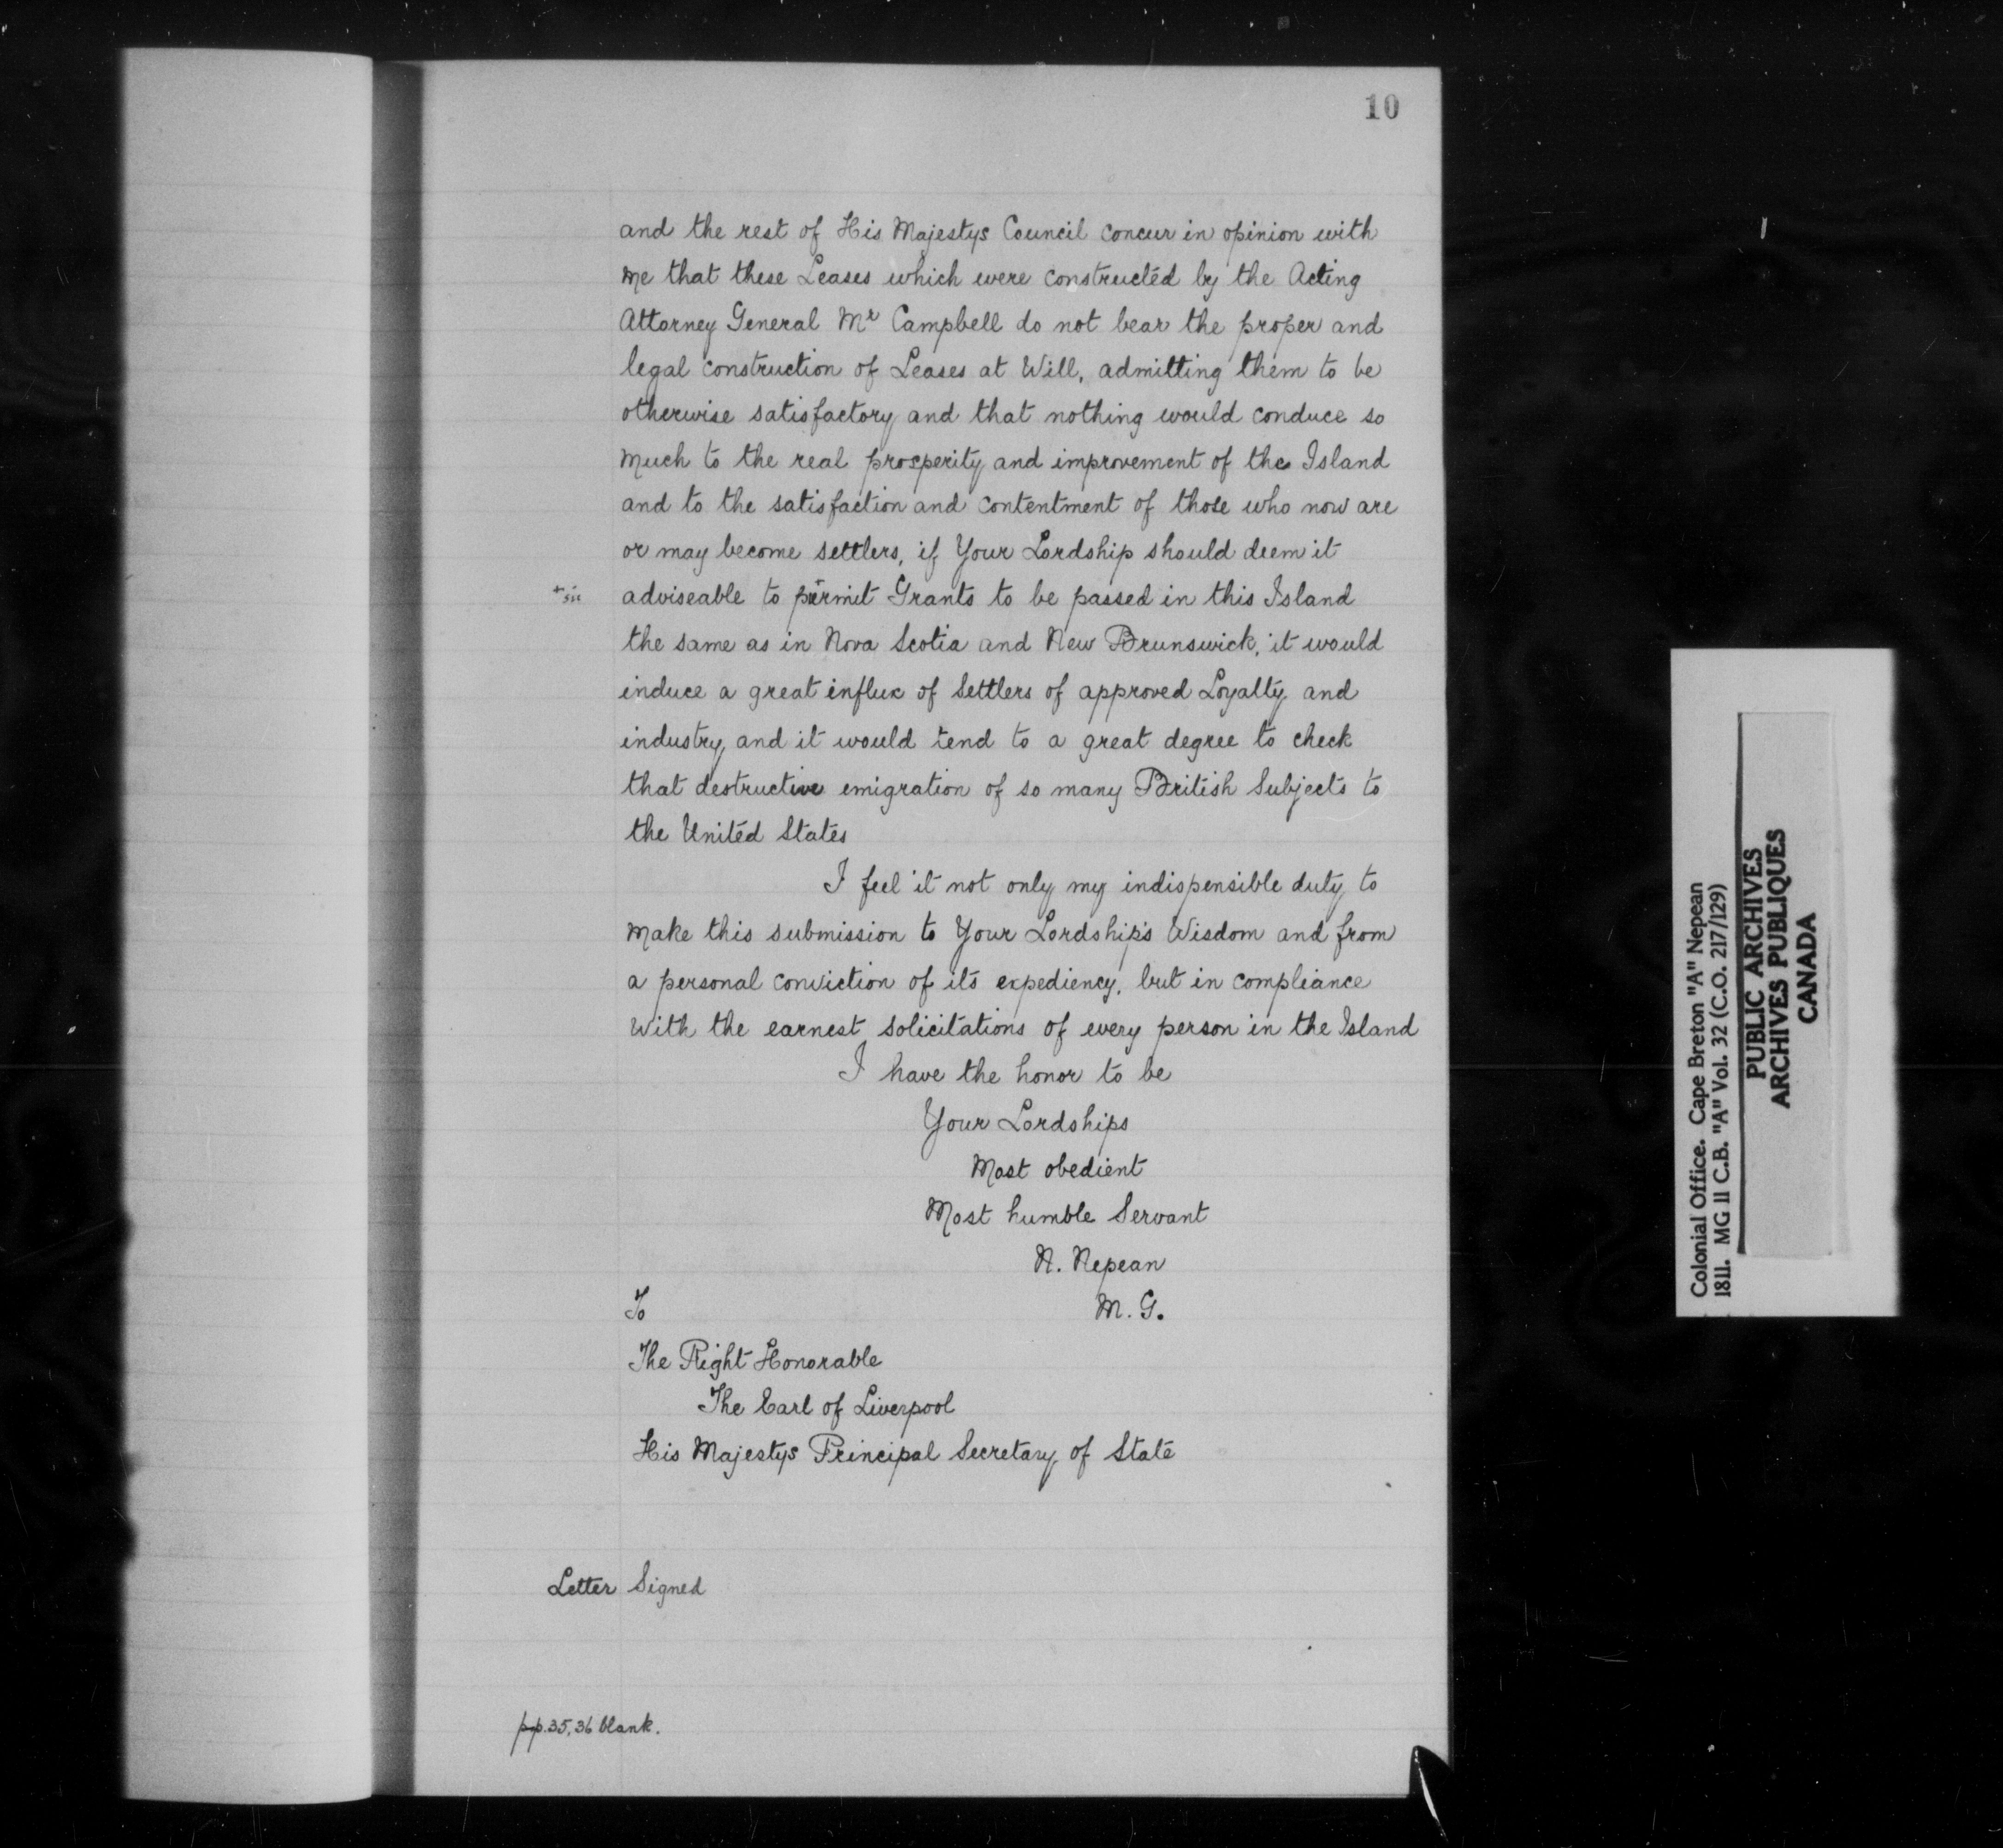 10
and the rest of His Majestys Council concur in opinion with
me that these Leases which were constructed by the Acting
Attorney General Mr Campbell do not bear the proper and
legal construction of Leases at Will, admitting them to be
otherwise satisfactory and that nothing would conduce so
much to the real prosperity and improvement of the Island
and to the satisfaction and contentment of those who now are
or may become settlers, if Your Lordship should deem it
adviseable to permit Grants to be passed in this Island
the same as in Nova Scotia and New Brunswick, it would
induce a great influx of Settlers of approved Loyalty and
industry, and it would tend to a great degree to check
that destructive emigration of so many British Subjects to
the United States
I feel it not only my indispensible duty to
make this submission to Your Lordship's Wisdom and from
a personal conviction of its expediency, but in compliance
with the earnest solicitations of every person in the Island
I have the honor to be
Your Lordships
Most obedient
Most humble Servant
N. Nepean
To M. G.
The Right Honorable
The Earl of Liverpool
His Majestys Principal Secretary of State
Letter Signed
pp. 35, 36 blank.
Colonial Office. Cape Breton "A" Nepean
1811. MG 11 C.B. "A" Vol. 32 (C.O. 217/129)
PUBLIC ARCHIVES
ARCHIVES PUBLIQUES
CANADA